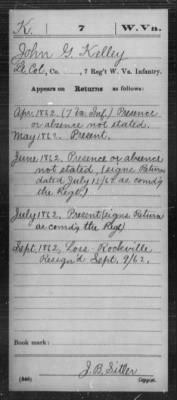 K. 7 W. Va.
John G. Kelley
Lt Col, Co. , 7 Reg't W. Va. Infantry.
Appears on Returns as follows:
Apr. 1862. (7 Va Inf.) Presence
or absence not stated.
May 1862. Present.
June 1862. Presence or absence
not stated. (signs Return
dated July 11/62 as comd'g
the Regt.)
July 1862. Present (signs Return
as comd'g the Regt)
Sept. 1862, Loss Rockville
Resign'd Sept. 9/62.
Book mark:
J. B. Sitler
(546) Copyist.